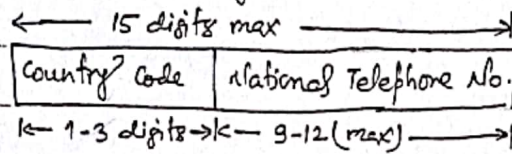 15 digits max
Country Code National Telephone No.
1-3 digits 9-12 (max)